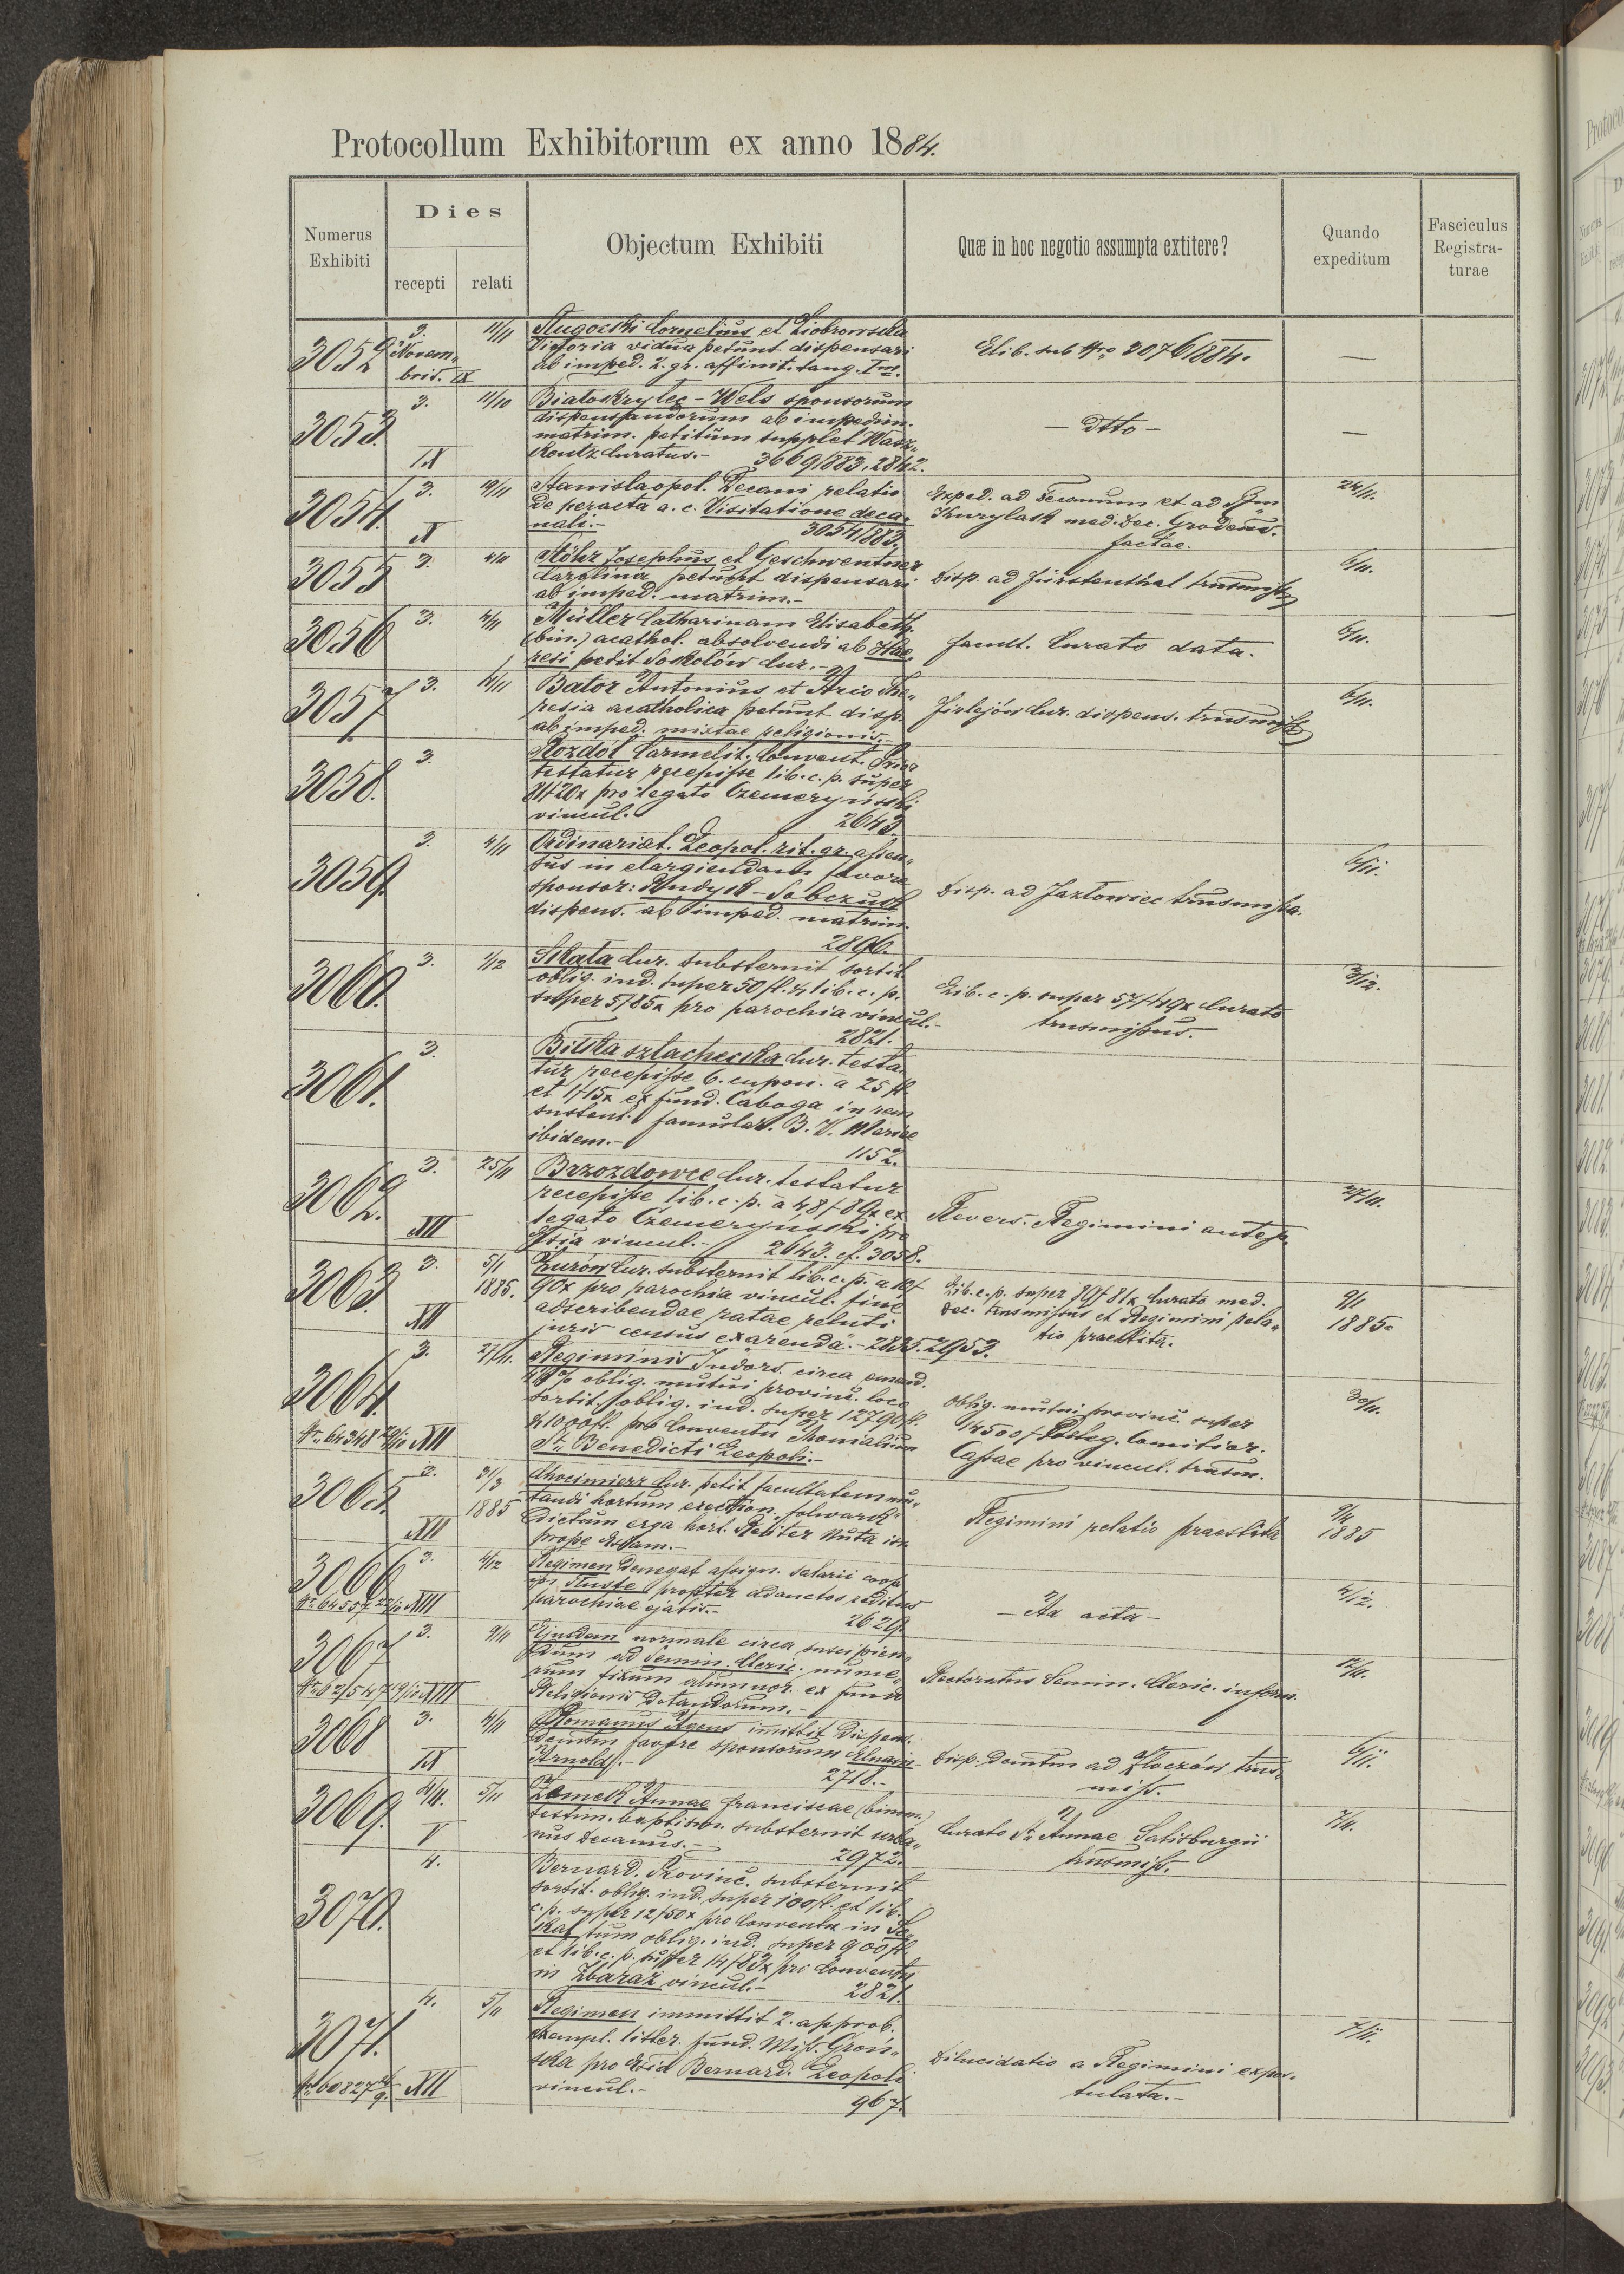 Protocollum Exhibitorum ex anno 1884.
Numerus Exhibiti
Dies
recepti
relati
Objectum Exhibiti
Quæ in hoc negotio assumpta extitere?
Quando expeditum
Fasciculus Registra-
turae
3052
3. Novem„
bris. IX
11/11
Cornelius et Ziobrowska
Victoria vidua petunt dispensari
ab imped. 2. gr. affinit. tang. Im.
Elib. sub Nro 3076/884.
—
3053.
3.
IX
11/10
Białoskrytec - Wels sponsorum
dispensandorum ab impedim.
matrim. petitum supplet Wasz„
koutz Curatus.- 3669/883, 2842.
- dtto -
—
3054.
3.
X
19/11
Stanislaopol. Decani relatio
de peracta a. c. Visitatione deca„
nali.-
3054/883.
Exped. ad Decanum et ad
Kurylask med. Dec. Grodens.
factae.
24/11.
3055
3.
4/11
Stöhr Josephus et Geschwentner
Carolina petunt dispensari
ab imped. matrim.-
Disp. ad Fürstenthal
6/11.
3056
3.
4/11
Müller Catharinam Elisabeth.
(bin.) acathol. absolvendi ab Hae„
resi petit Sokołów Cur.-
facult. Curato data.
6/11.
3057
3.
4/11
Bator Antonius et Aric The„
resia acatholica petunt disp.
ab imped. mixtae religionis.-
Firlejów Cur. dispens.
6/11.
3058.
3.
Rozdół Carmelit. Convent. Prior
testatur recepisse lib. c. p. super
pro legato Czemeryński
vincul. 2643.
3059.
3.
4/11
Ordinariat. Leopol. rit. gr. assen„
sus in elargiendam favore
sponsor: Studyck - Sobczuck
dispens. ab imped. matrim.
2896.
Disp. ad Jazłowiec trnsmissa.
6/11.
3060.
3.
1/12
Skała Cur. substernit sortit.
oblig. ind. super 50 fl. & lib. c. p.
super 5/85x pro parochia vincul.-
2821.
Lib. c. p. super 57/49x Curato
trnsmissus.
3/12.
3061.
3.
Biłka szlachecka Cur. testa„
tur recepisse 6. cupon. a 25 fl.
et 1/15x ex fund. Caboga in rem
sustent. famular. B. V. Mariae
ibidem.-
1152.
3062.
3.
XII
25/11
Brzozdowce Cur. testatur
recepisse lib. c. p. a 48/89x ex
legato Czemeryński pro
vincul.- 2643. cf. 3058.
Revers. Regimini
27/11.
3063.
3.
XII
5/1
1885.
Żurów Cur. substernit lib. c. p. a 10f
90x pro parochia vincul. fine
adscribendae ratae reluti
juris census ex arenda.- 2835. 2953.
Lib. c. p. super Curato med.
Dec. trnsmissus et Regimini rela„
tio praestita.
9/1
1885.
3064.
Nr. 64348 XII
3.
27/11.
Regiminis Indors. circa
oblig. mutui provinc. loco
sortit. oblig. ind. super 12790 fl.
& 1000 fl. pro Conventu Monialium
St. Benedicti Leopoli.-
Oblig. mutui provinc. super
14500 f Deleg. Comitior.
Cassae pro vincul. trnsm.
30/11.
3065.
3.
XII
31/3
1885
Chocimierz Cur. petit facultatem mu„
tandi hortum erection. folwark
dictum erga hort. Nuta
prope
Regimini relatio praestita
9/4
1885
3066
Nr. 64557 XIII
3.
4/12
Regimen denegat assign. salarii coop.
Tłuste propter adauctos reditus
parochiae ejatis.-
2629.
- Ad acta -
4/12.
3067
XIII
3.
9/11
Ejusdem normale circa suscipien„
dum ad Semin. Cleric. nume„
rum fixum alumnor. ex fundo
Religionis dotandorum.-
Rectoratus Semin. Cleric. inform.
12/11.
3068
3.
IX
4/11
Romanus Agens immittit Dispens.
favore sponsorum
Arnold.-
2718.-
Disp. ad Złoczów trns„
miss.
6/11.
3069.
4/11.
V
5/11
Zamek Annae Franciscae (binom.)
testim. baptism. substernit urba„
nus Decanus.-
2972.
Curato St. Annae Salisburgii
trnsmiss.
7/11.
3070.
4.
Bernard. Provinc. substernit
sortit. oblig. ind. super 100 fl. et lib.
c. p. super 12/50x pro Conventu in So„
kal tum oblig. ind. super 900 fl.
et lib. c. p. super 14/83x pro Conventu
in Zbaraż vincul.-
2821.
3071.
XII
4.
5/11
Regimen immittit 2. approb.
exempl. litter. fund. Miss. Groń„
ska pro Bernard. Leopoli
vincul.-
967.
Dilucidatio a Regimini expos„
tulata.-
7/11.